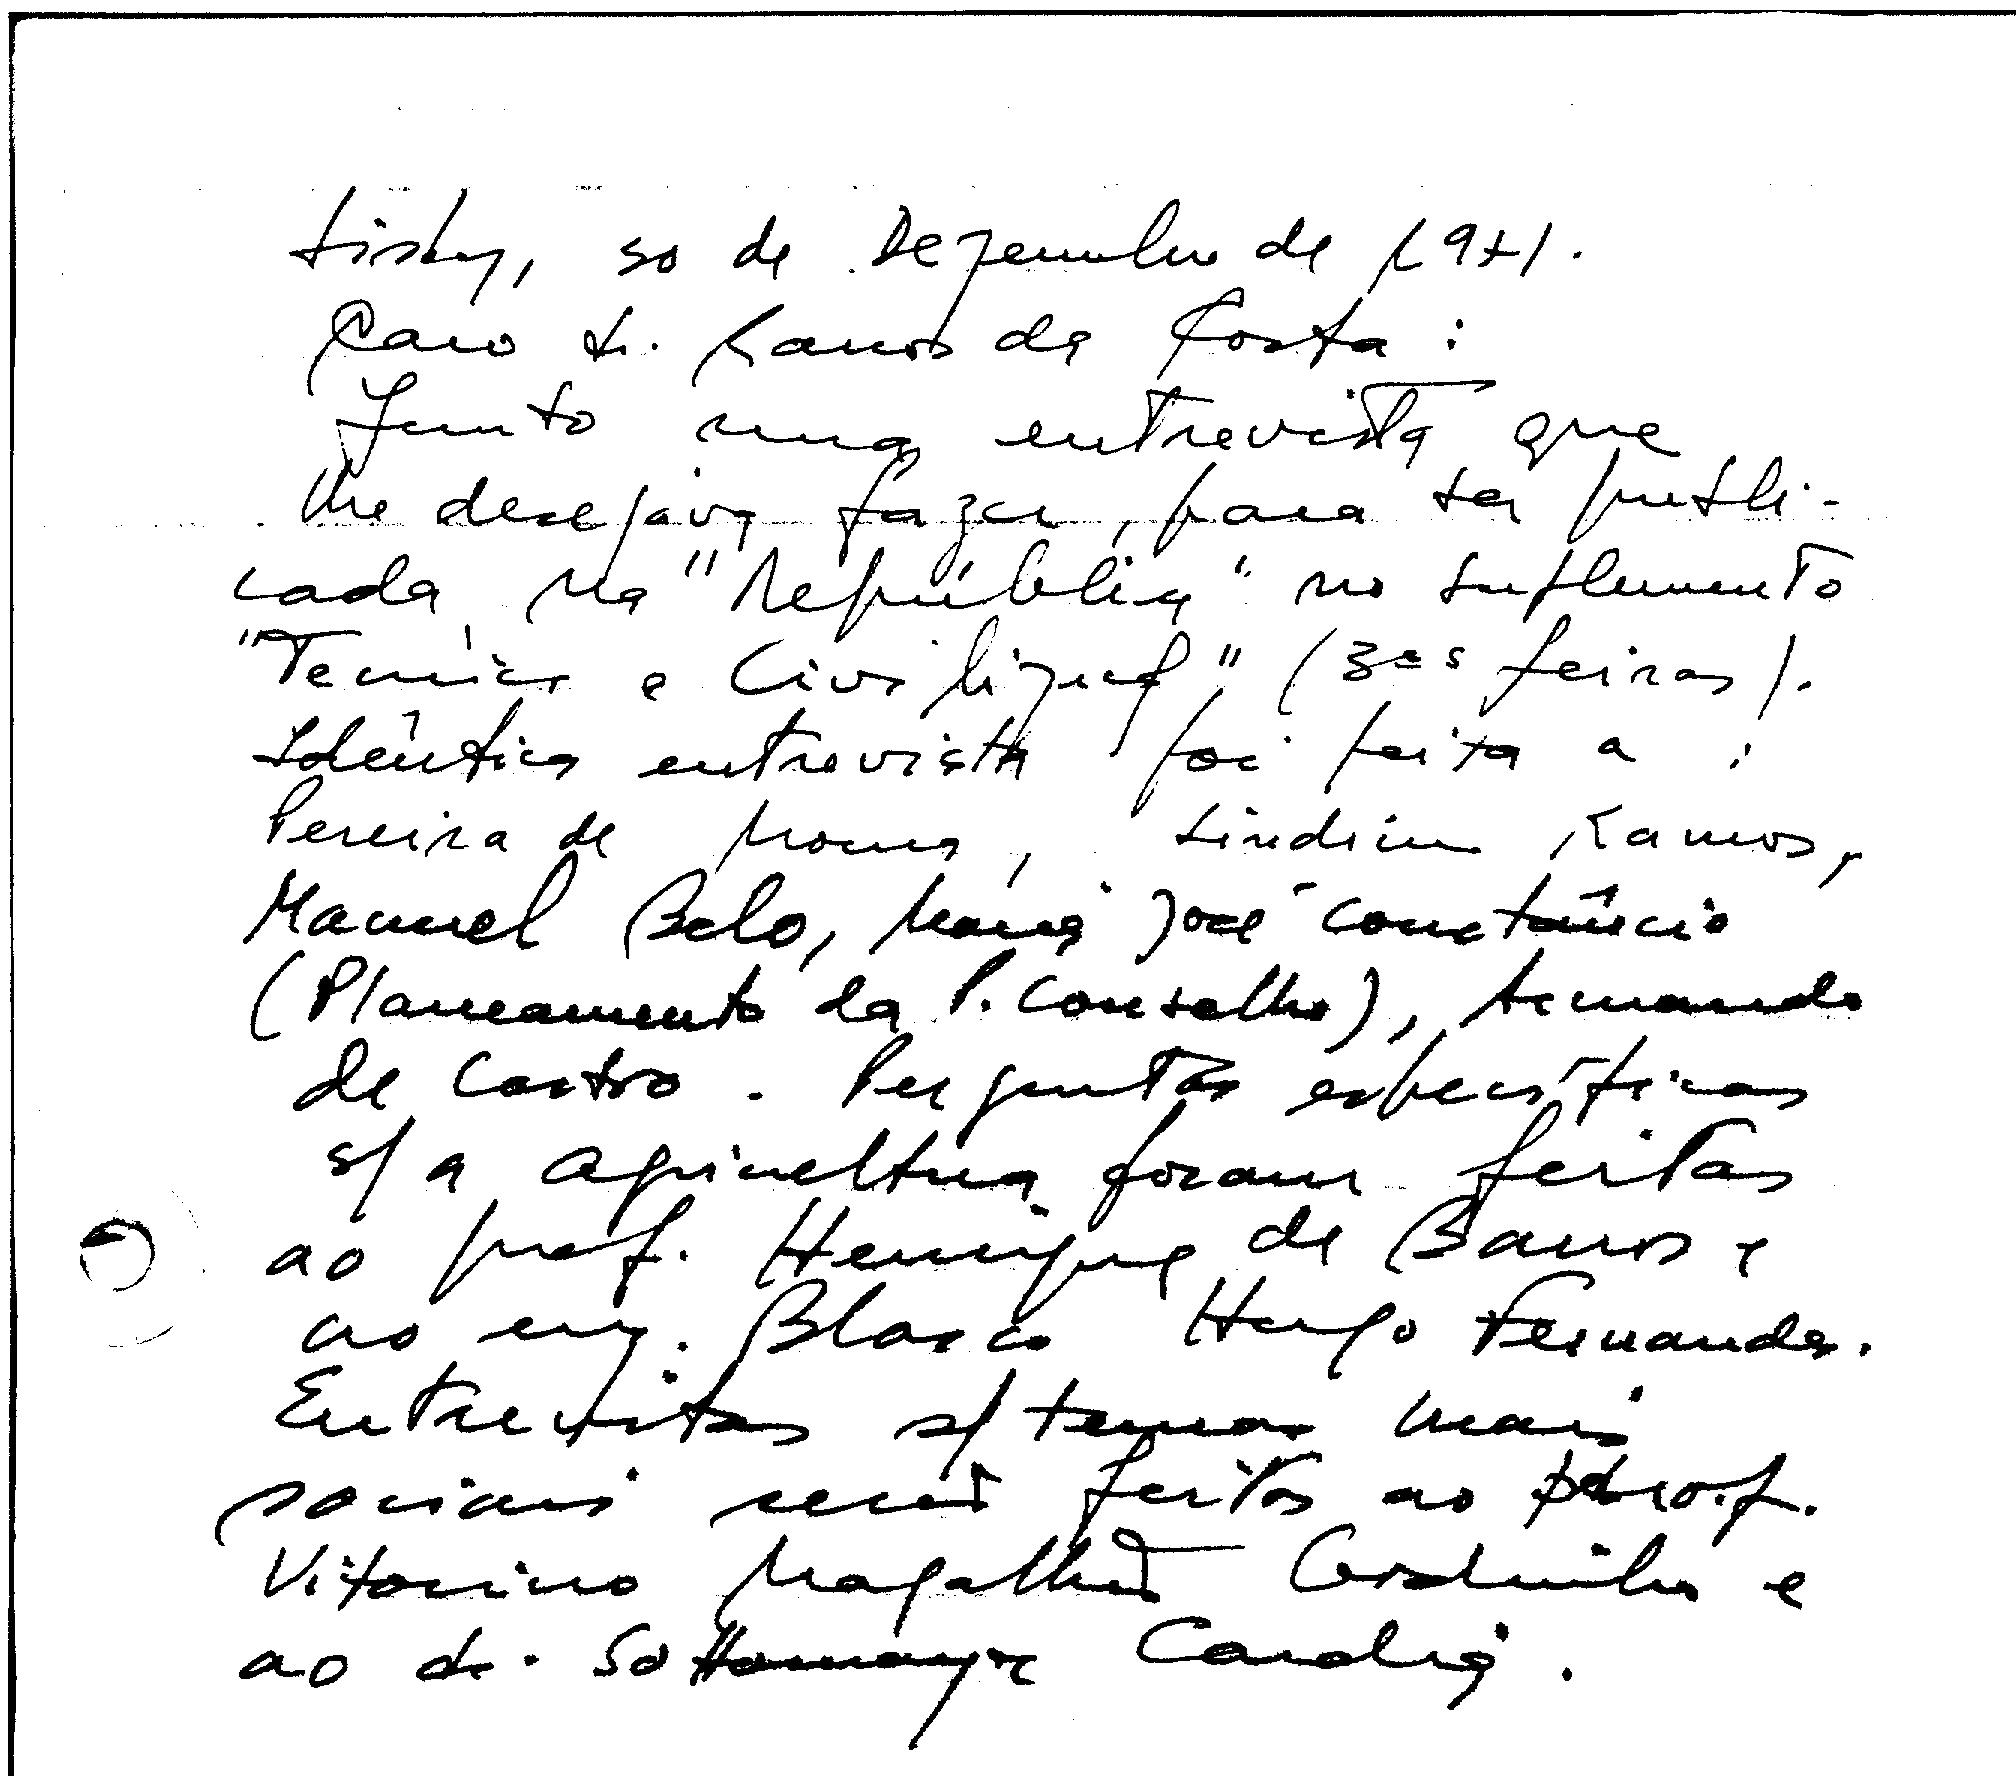 Lisboa, 30 de Dezembro de 1971.
Caro dr. Ramos da Costa:
Junto uma entrevista que
lhe desejava fazer, para ser publi-
cada na "República" no suplemento
"Técnica e Civilização" (3ªs feiras).
Idêntica entrevista foi feita a:
Pereira de Moura, Sindim Ramos,
Manuel Belo, Maria José Constâncio
(Planeamento da P. Conselho), Armando
de Castro. Perguntas específicas
s/ a agricultura foram feitas
ao prof. Henrique de Barros e
ao eng. Blasco Hugo Fernandes.
Entrevistas s/ temas mais
sociais serão feitas ao prof.
Vitorino Magalhães Godinho e
ao dr. Sottomayor Cardia.